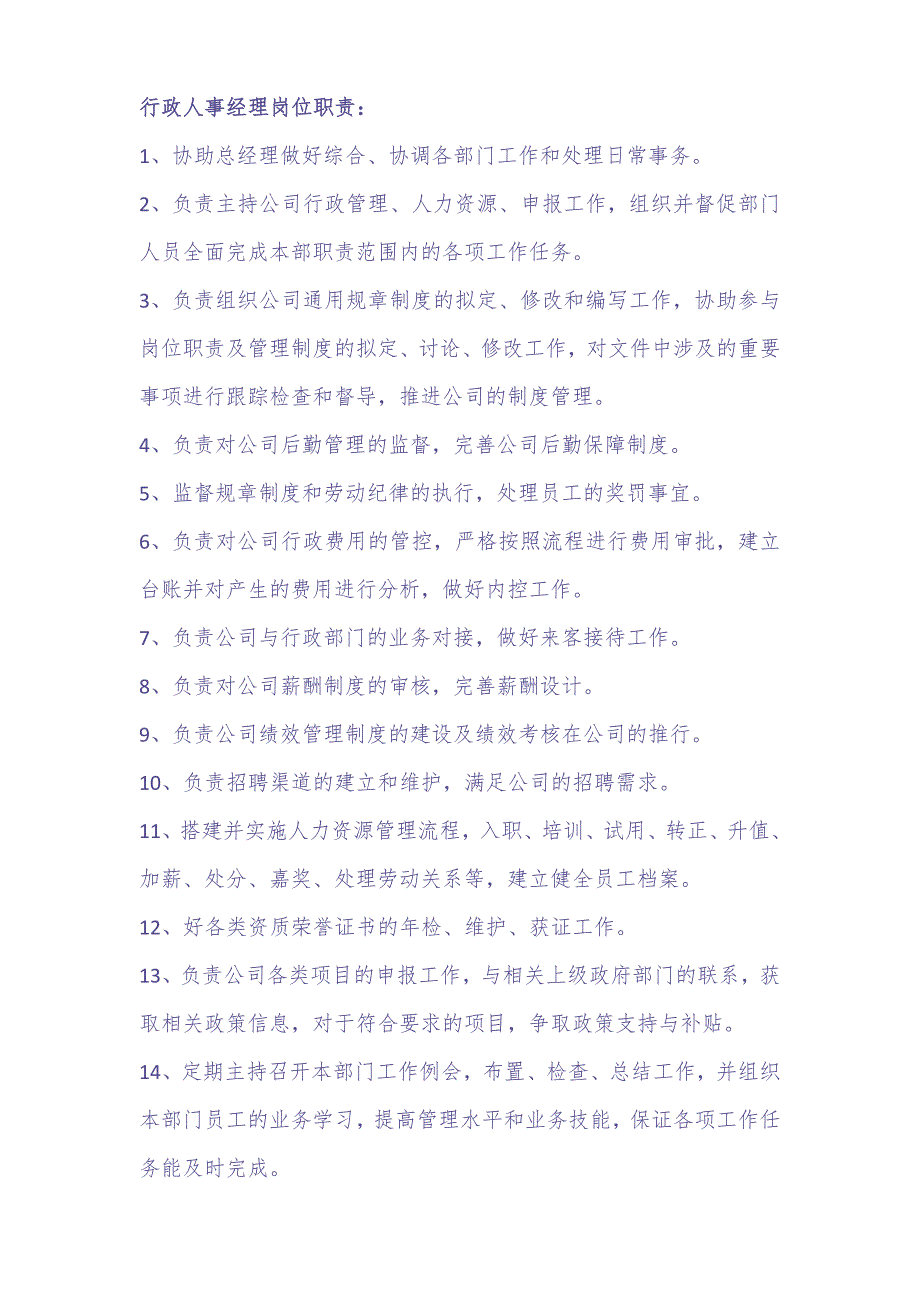 行政人事经理岗位职责：
1、协助总经理做好综合、协调各部门工作和处理日常事务。
2、负责主持公司行政管理、人力资源、申报工作，组织并督促部门
人员全面完成本部职责范围内的各项工作任务。
3、负责组织公司通用规章制度的拟定、修改和编写工作，协助参与
岗位职责及管理制度的拟定、讨论、修改工作，对文件中涉及的重要
事项进行跟踪检查和督导，推进公司的制度管理。
4、负责对公司后勤管理的监督，完善公司后勤保障制度。
5、监督规章制度和劳动纪律的执行，处理员工的奖罚事宜。
6、负责对公司行政费用的管控，严格按照流程进行费用审批，建立
台账并对产生的费用进行分析，做好内控工作。
7、负责公司与行政部门的业务对接，做好来客接待工作。
8、负责对公司薪酬制度的审核，完善薪酬设计。
9、负责公司绩效管理制度的建设及绩效考核在公司的推行。
10、负责招聘渠道的建立和维护，满足公司的招聘需求。
11、搭建并实施人力资源管理流程，入职、培训、试用、转正、升值、
加薪、处分、嘉奖、处理劳动关系等，建立健全员工档案。
12、好各类资质荣誉证书的年检、维护、获证工作。
13、负责公司各类项目的申报工作，与相关上级政府部门的联系，获
取相关政策信息，对于符合要求的项目，争取政策支持与补贴。
14、定期主持召开本部门工作例会，布置、检查、总结工作，并组织
本部门员工的业务学习，提高管理水平和业务技能，保证各项工作任
务能及时完成。